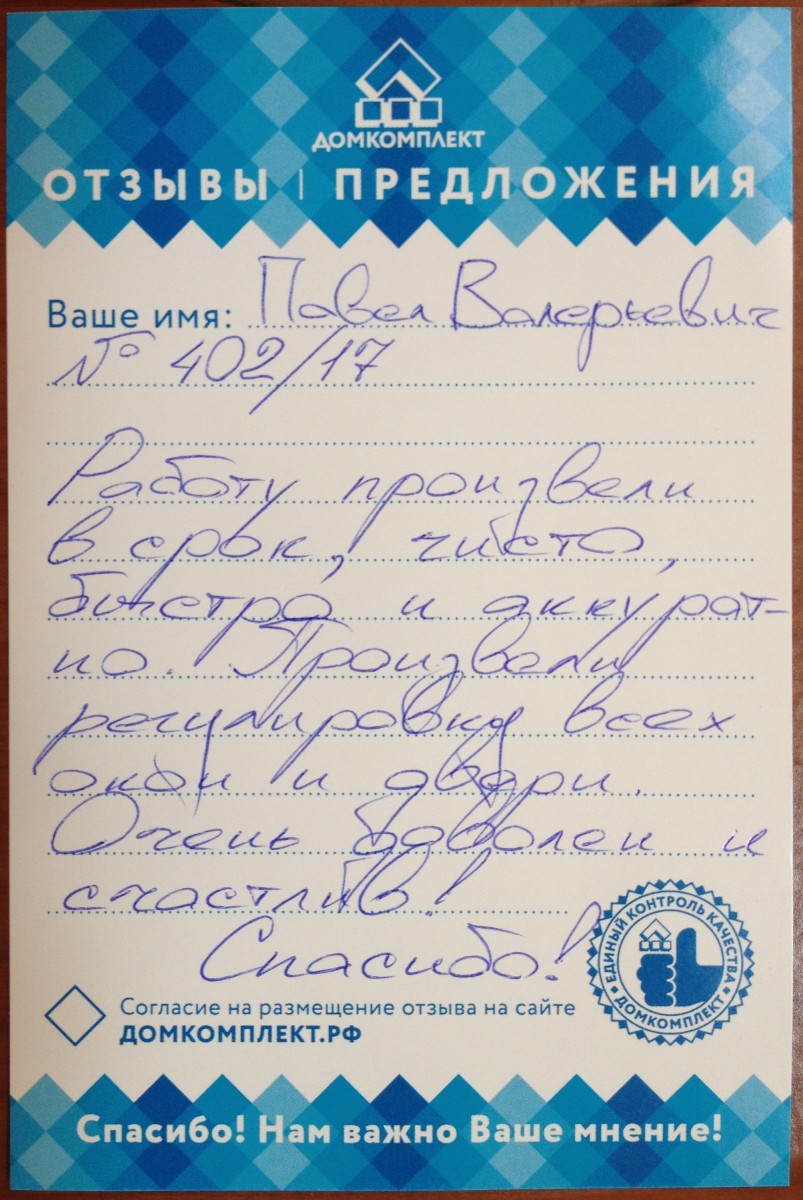 ДОМКОМПЛЕКТ
ОТЗЫВЫ | ПРЕДЛОЖЕНИЯ
Ваше имя: Павел Валерьевич
№ 402/17
Работу произвели
в срок, чисто,
быстро и аккурат-
но. Произвели
регулировку всех
окон и двери.
Очень доволен и
счастлив!
Спасибо!
ЕДИНЫЙ КОНТРОЛЬ КАЧЕСТВА
ДОМКОМПЛЕКТ
Согласие на размещение отзыва на сайте
ДОМКОМПЛЕКТ.РФ
Спасибо! Нам важно Ваше мнение!